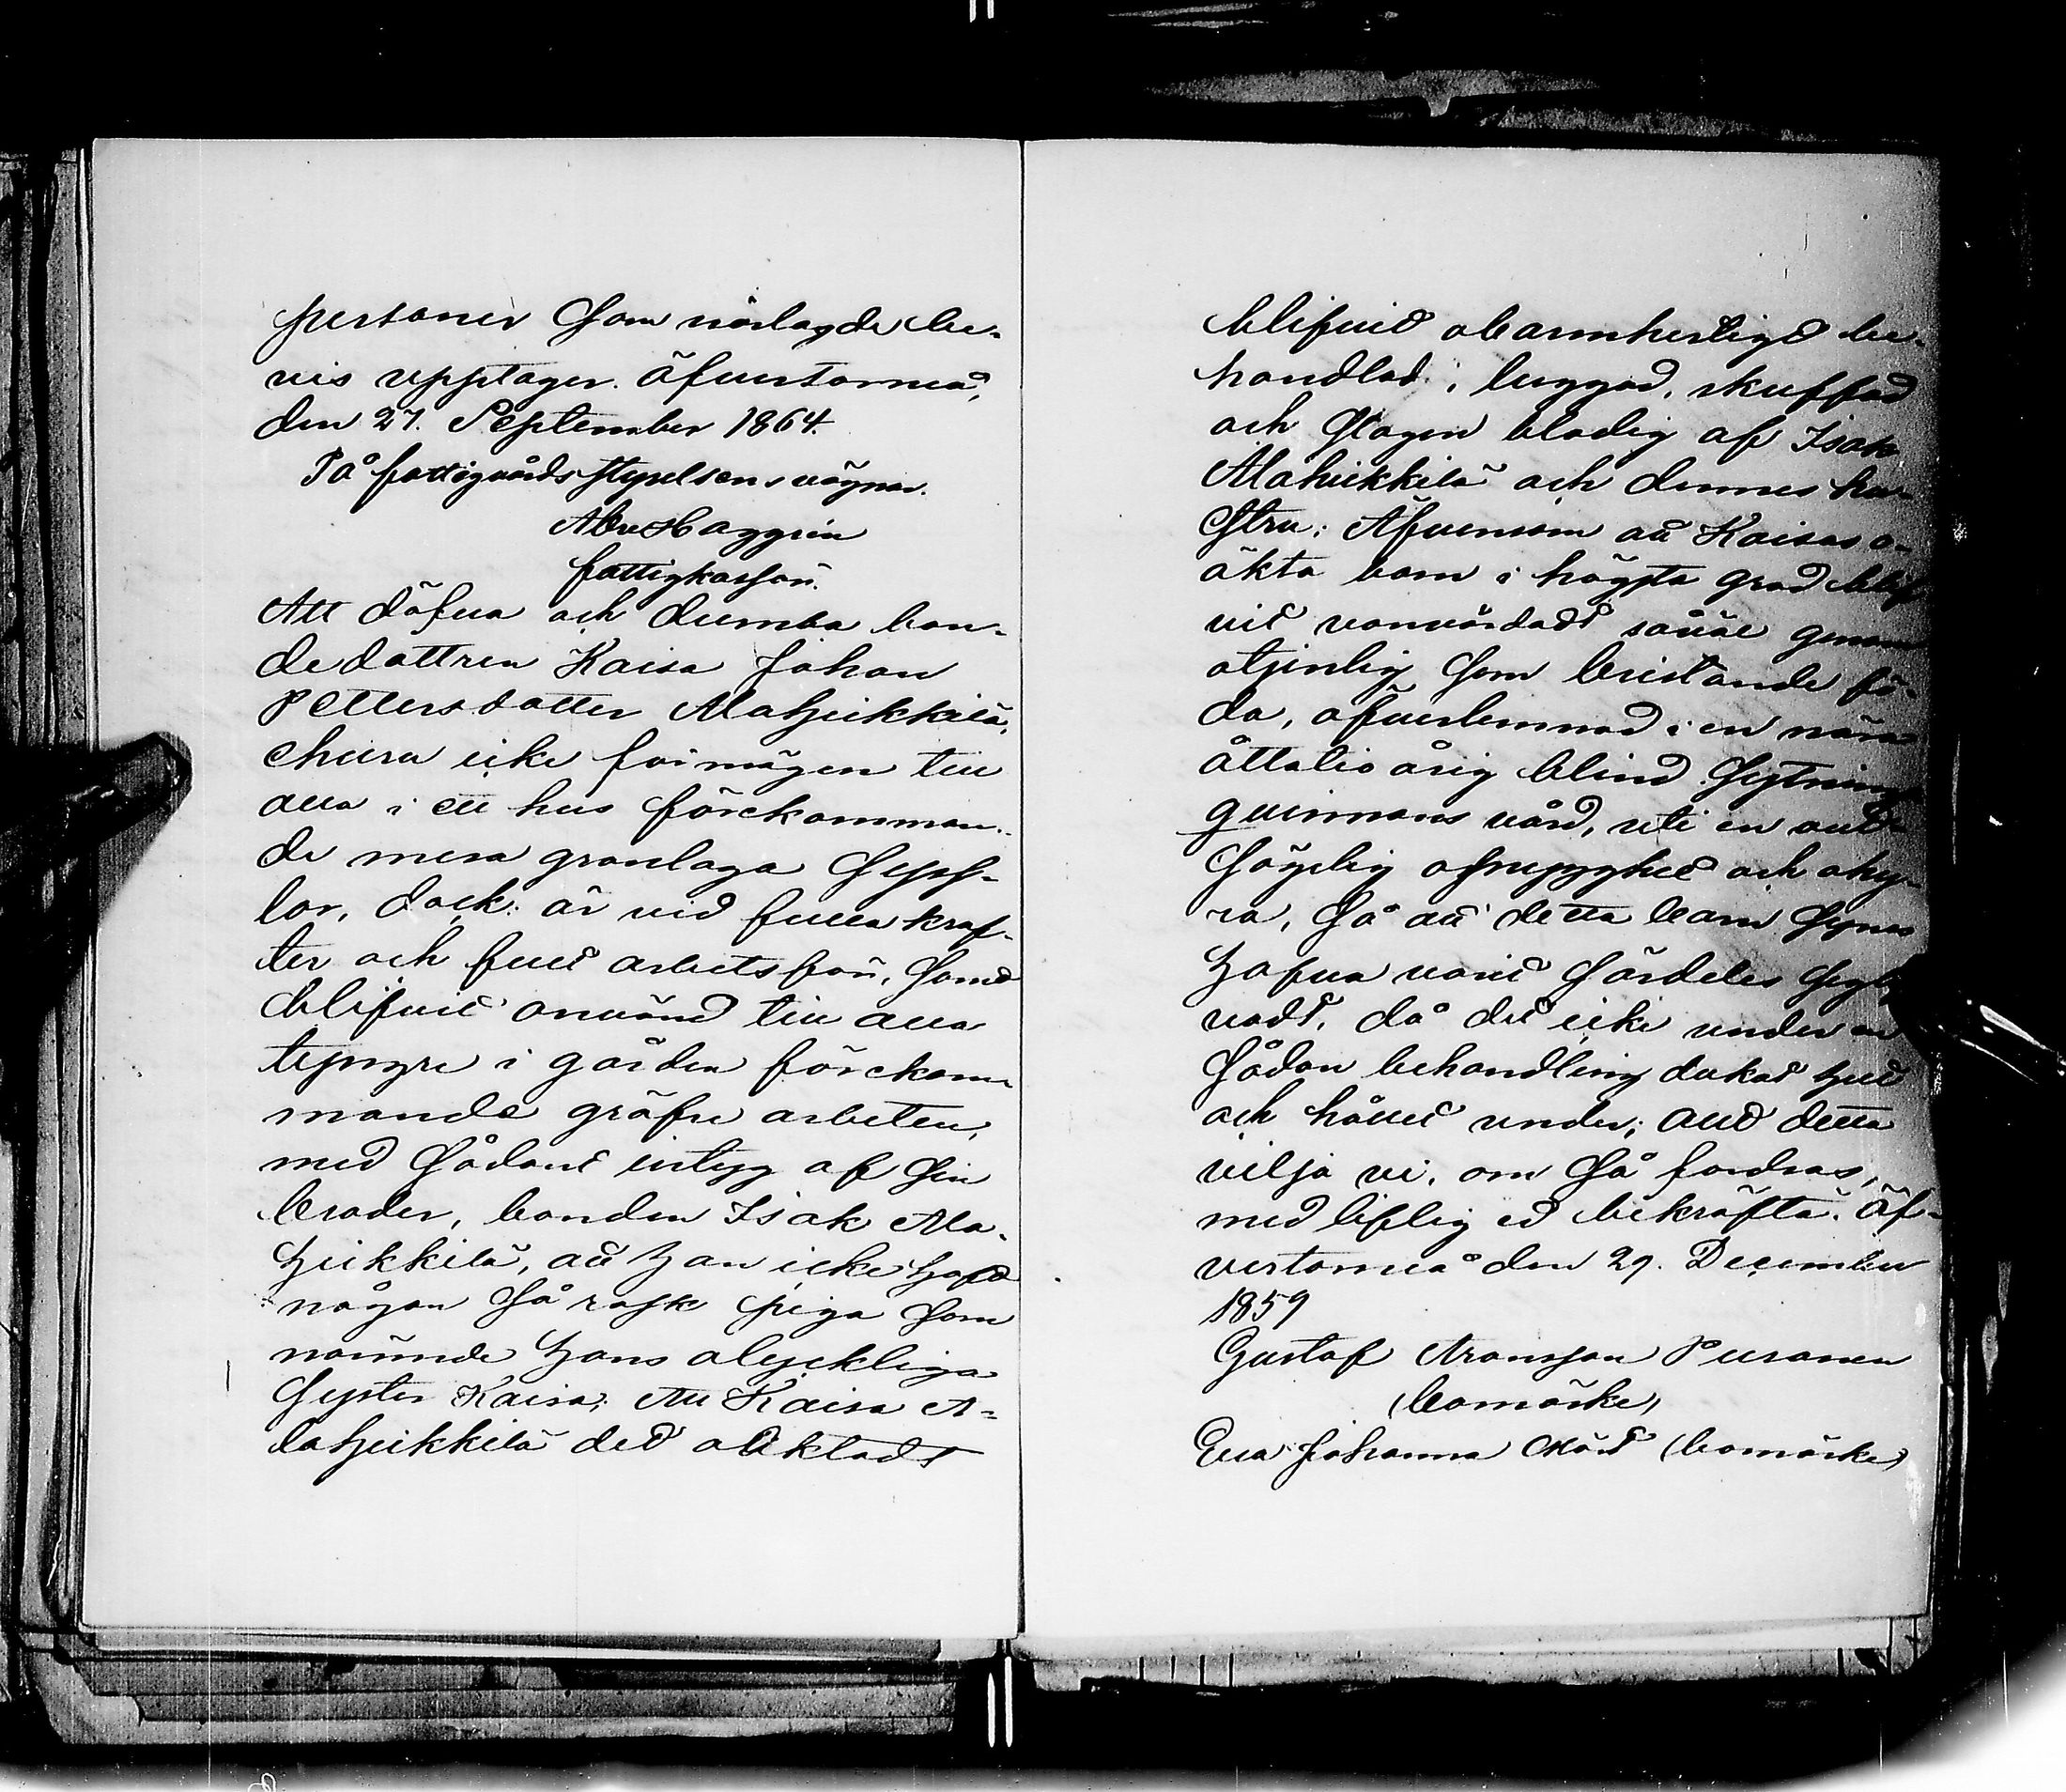 personer som närlagde be-
vis upptager. Öfvertorneå,
den 27. September 1864.
På fattigvårdsstyrelsens vägnar.
Abr Haggrén
fattigkassör.
Att döfva och dumba bon-
dedottren Kaisa Johan
Pettersdotter Alahjeikkilä,
ehuru icke förmögen till
alla i ett hus förekomman-
de mera granlaga syss-
lor, dock är vid fulla kraf-
ter och full arbetsför, samt
blifvit använd till alla
tyngre i gården förekom-
mande gröfre arbeten,
med sådant intyg af sin
broder, bonden Isak Ala-
hjeikkilä, att han icke haft
någon så rask piga som
nämnde hans olyckliga
syster Kaisa; Att Kaisa A-
lahjeikkilä det oaktadt
blifvit obarmhertigt be-
handlad, luggad, skuffad
och slagen blodig af Isak
Alaheikkilä och dennes hu-
stru: Äfvensom att Kaisas o-
äkta barn i högsta grad blif
vit vanvårdadt såväl genom
otjenlig som bristande fö-
da, öfverlemnad i en nära
åttatio årig blind
qvinnans vård, uti en out-
säglig osnygghet och ohy-
ra, så att detta barn synes
hafva varit särdeles
vadt, då det icke under en
sådan behandling dukat
och hållet under; allt detta
vilja vi, om så fordras,
med liflig ed bekräfta. Öf-
vertorneå den 29. December
1859
Gustaf Aronsson Puranen
(bomärke)
Eva Johanna Mört (bomärke)